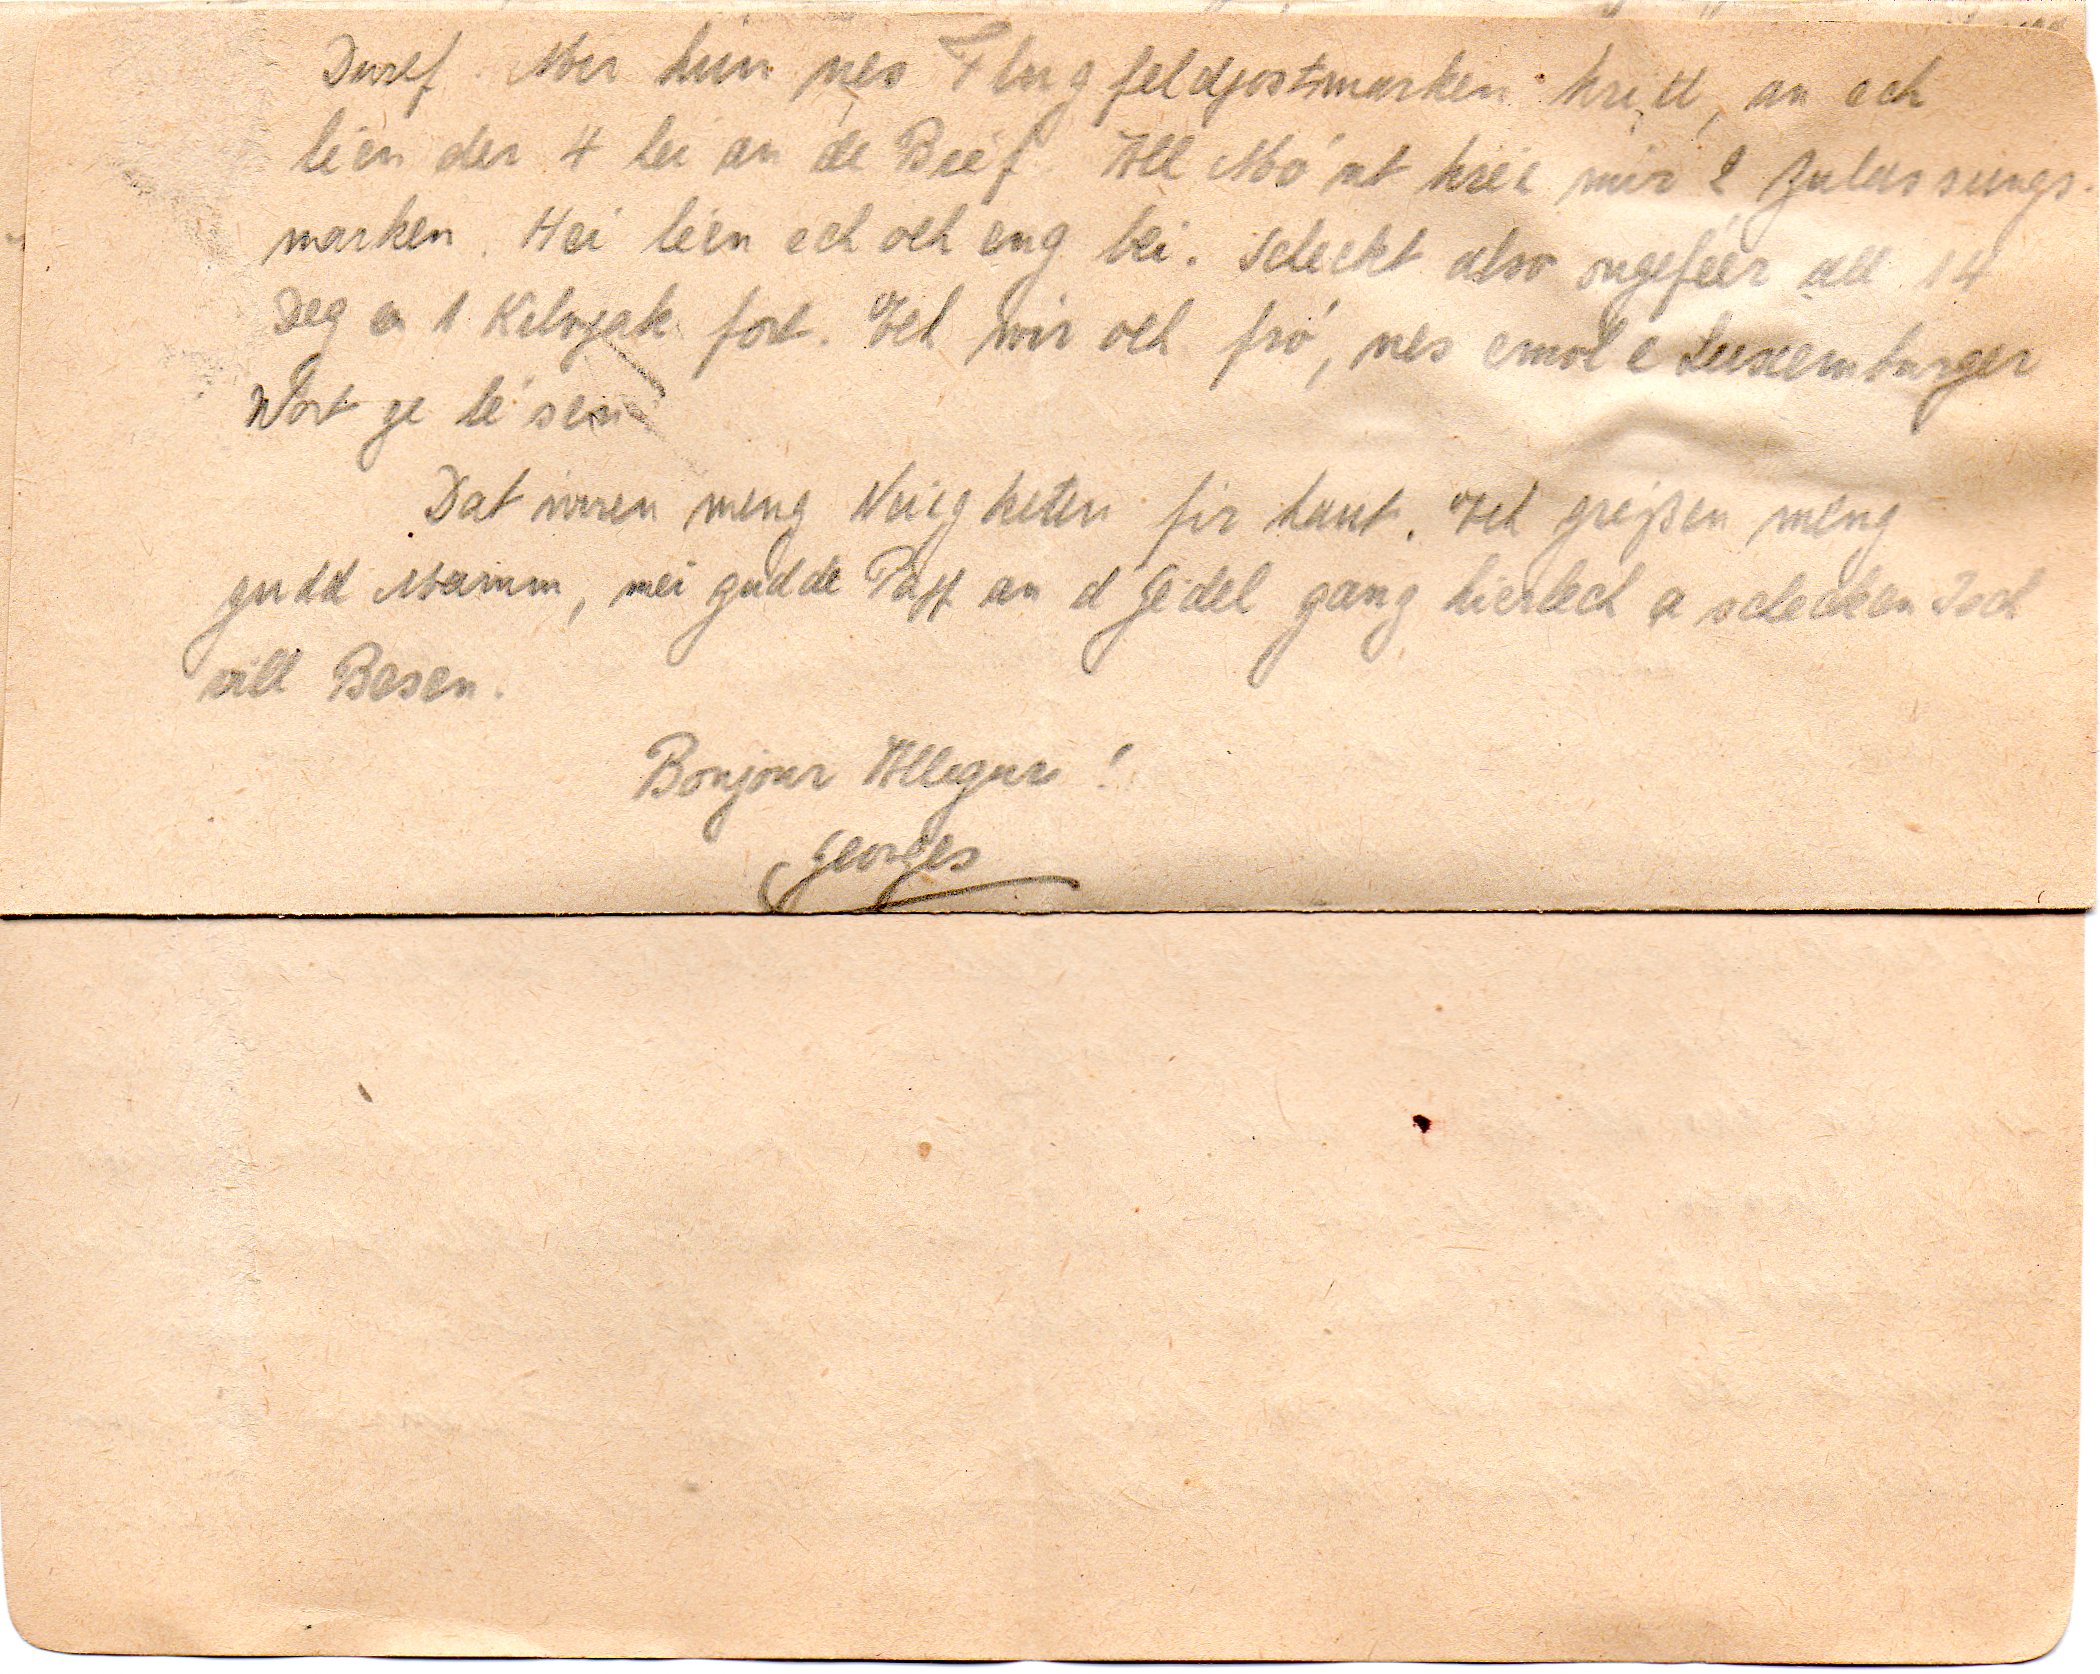 Duerf. Mer hun nes Flugfeldpostmarken kritt, an ech
léen der 4 hei an de Bréf. All Mo'nt kréie mir 2 Zulassungs-
marken. Hei léen ech och eng bei. Scheckt also ongeféer all 14
Deg e 1 Kilospak fort. Ech wir och fro', nes emol e Luxemburger
Wort ze lé'sen.
Dat wiren meng Neiegketen fir haut. Ech gréißen meng
gudd Mamm, mei gudde Papp an d Gédel ganz hierzlech a schecken Iech
vill Besen.
Bonjour Alleguer !
Georges